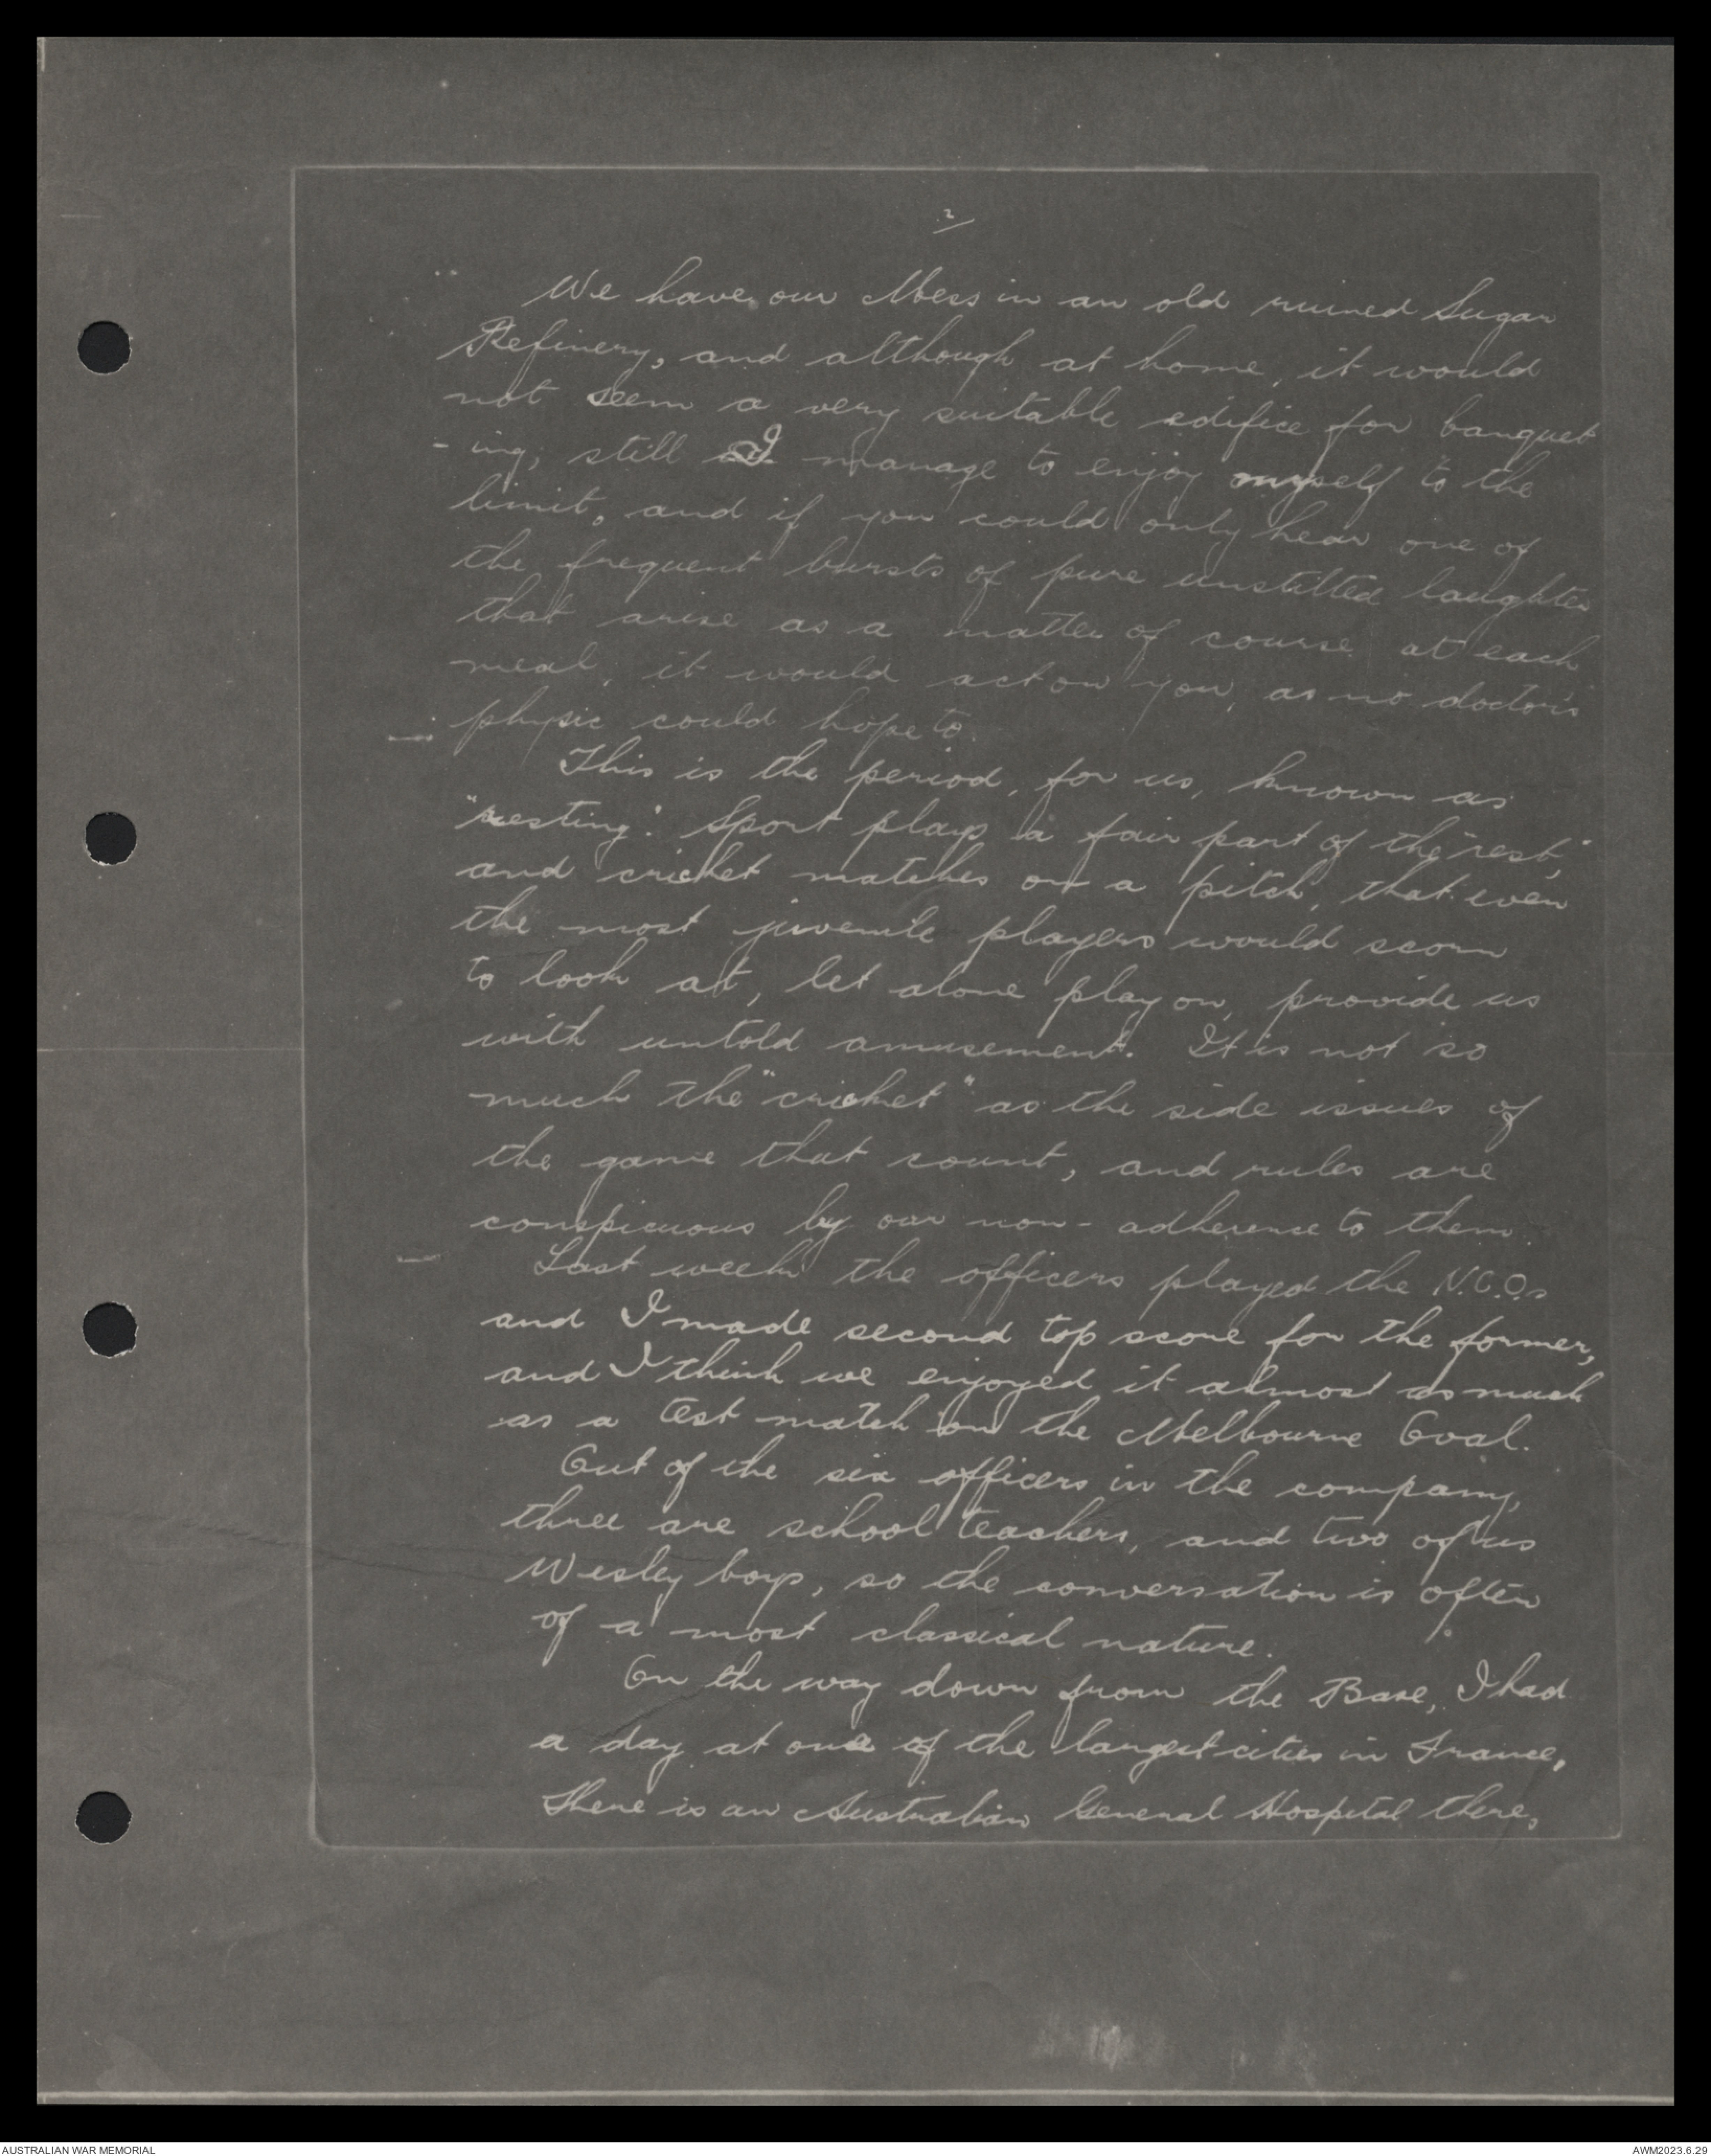 2
We have our Mess in an old ruined Sugar
Refinery, and although at home, it would
not seem a very suitable edifice for banquet
- ing, still I manage to enjoy myself to the
limit, and if you could only hear one of
the frequent bursts of pure unstilted laughter
that arise as a matter of course at each
meal, it would act on you, as no doctor's
physic could hope to.
This is the period, for us, known as
"resting". Sport plays a fair part of the "rest,"
and cricket matches on a pitch, that even
the most juvenile players would scorn
to look at, let alone play on, provide us
with untold amusement. It is not so
much the "cricket" as the side issues of
the game that count, and rules are
conspicuous by our non-adherence to them.
Last week the officers played the N.C.O.s
and I made second top score for the former,
and I think we enjoyed it almost as much
as a test match on the Melbourne Oval.
Out of the six officers in the company,
three are school teachers, and two of us
Wesley boys, so the conversation is often
of a most classical nature.
On the way down from the Base, I had
a day at one of the largest cities in France,
There is an Australian General Hospital there,
AUSTRALIAN WAR MEMORIAL
AWM2023.6.29